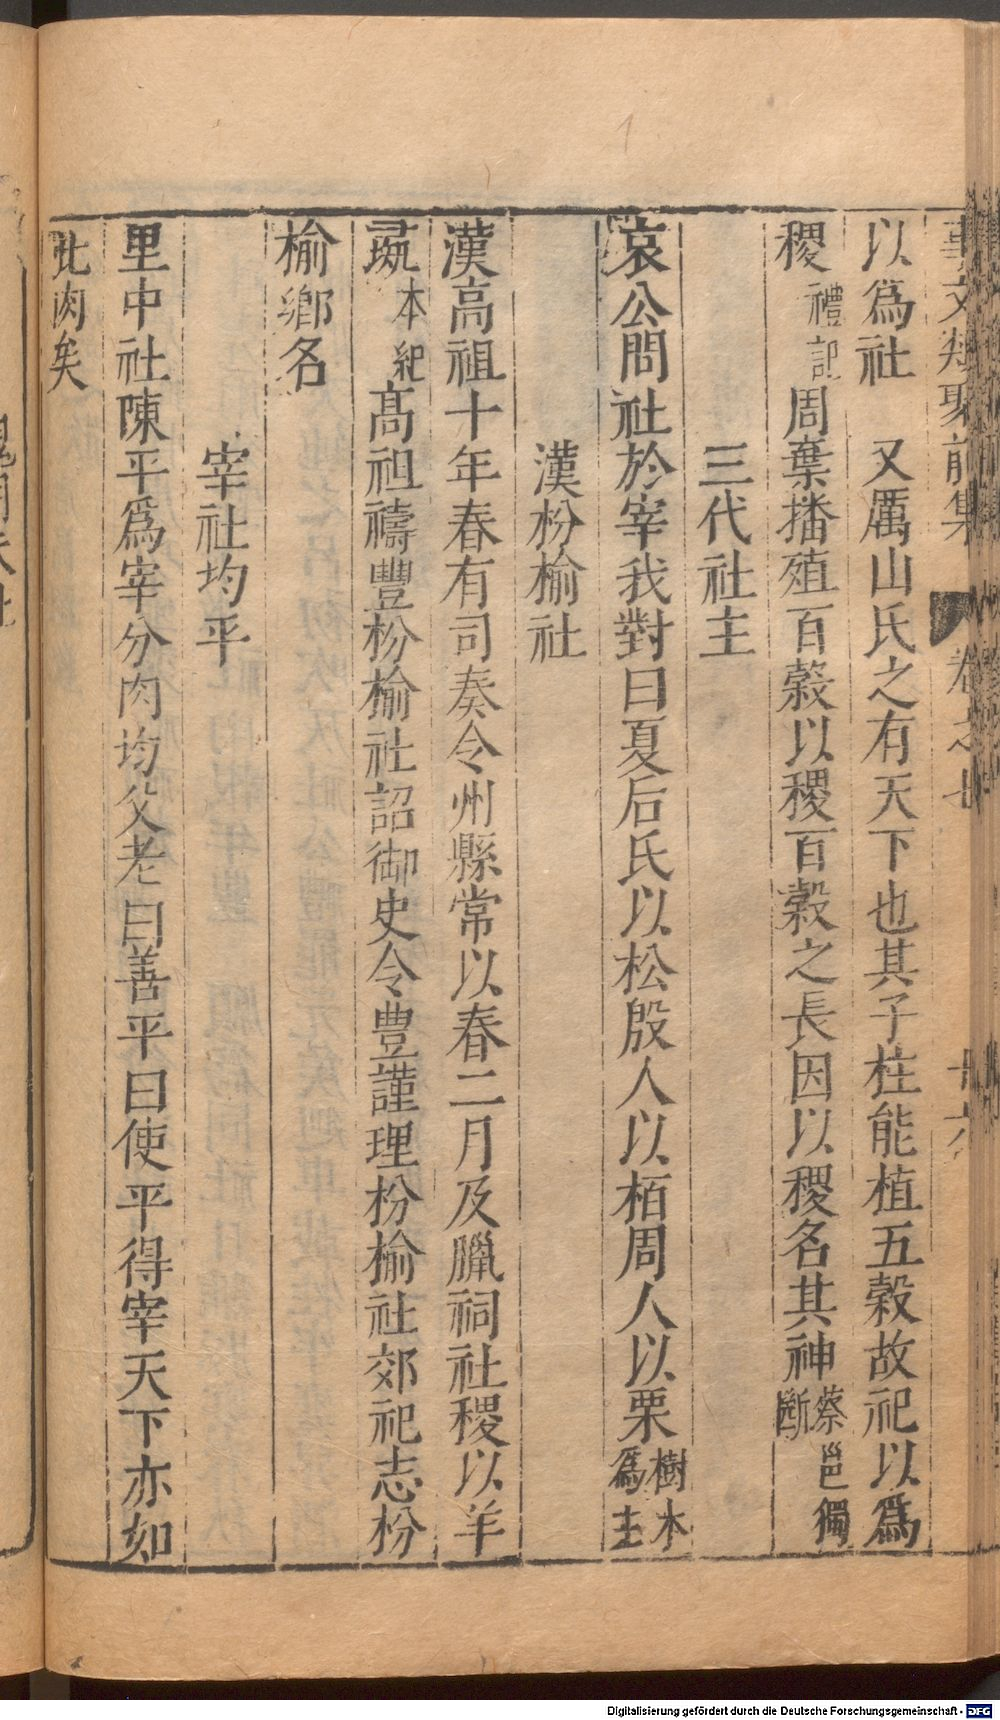 事文類聚前集 卷之七 十六
以爲社 又厲山氏之有天下也其子柱能植五穀故祀以爲
稷禮記周棄播殖百穀以稷百穀之長因以稷名其神蔡邕獨斷
三代社主
哀公問社於宰我對曰夏后氏以松殷人以栢周人以栗樹木爲主
漢枌榆社
漢高祖十年春有司奏令州縣常以春二月及臘祠社稷以羊
彘本紀高祖禱豐枌榆社詔御史令豊謹理枌榆社郊祀志枌
榆鄉名
宰社均平
里中社陳平爲宰分肉均父老曰善平曰使平得宰天下亦如
此肉矣
Digitalisierung gefördert durch die Deutsche Forschungsgemeinschaft - DFG